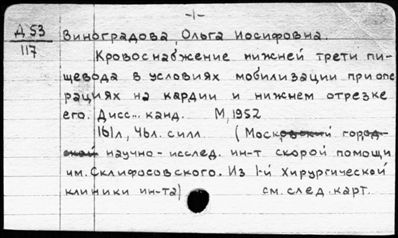 -1-
Д 53
117
Виноградова, Ольга Иосифовна.
Кровоснабжение нижней трети пи-
щевода в условиях мобилизации при опе
рациях на кардии и нижнем отрезке
его. Дисс... канд. М, 1952
161л, 4бл. силл. (Московский город-
ской научно-исслед. ин-т скорой помощи
им. Склифосовского. Из 1-й Хирургической
клиники ин-та)
см. след. карт.